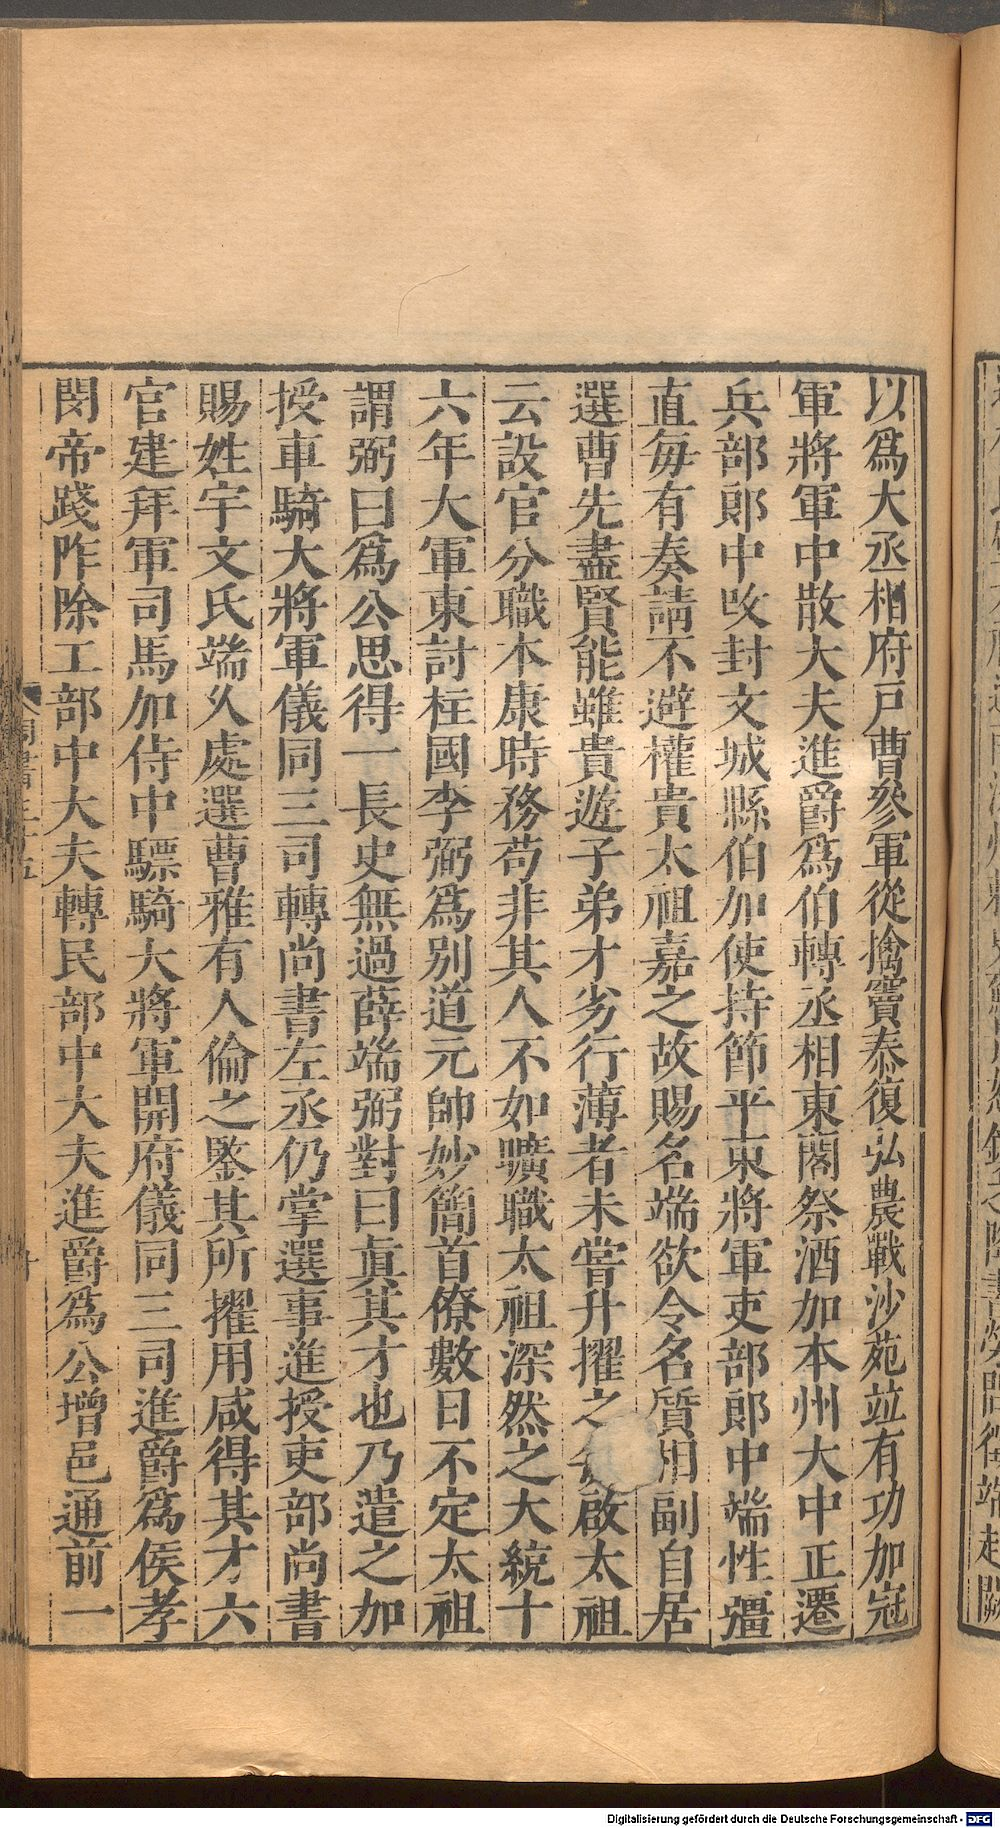 以爲大丞相府戸曹參軍從擒竇泰復弘農戰沙苑竝有功加冠
軍將軍中散大夫進爵爲伯轉丞相東閣祭酒加本州大中正遷
兵部郎中攺封文城縣伯加使持節平東將軍吏部郎中端性彊
直每有奏請不避權貴太祖嘉之故賜名端欲令名質相副自居
選曹先盡賢能雖貴遊子弟才劣行薄者未嘗升擢之 啟太祖
云設官分職本康時務苟非其人不如曠職太祖深然之大統十
六年大軍東討柱國李弼爲別道元帥妙簡首僚數日不定太祖
謂弼曰爲公思得一長史無過薛端弼對曰眞其才也乃遣之加
授車騎大將軍儀同三司轉尚書左丞仍掌選事進授吏部尚書
賜姓宇文氏端久處選曹雅有人倫之鑒其所擢用咸得其才六
官建拜軍司馬加侍中驃騎大將軍開府儀同三司進爵爲侯孝
閔帝踐阼除工部中大夫轉民部中大夫進爵爲公增邑通前一
Digitalisierung gefördert durch die Deutsche Forschungsgemeinschaft - DFG